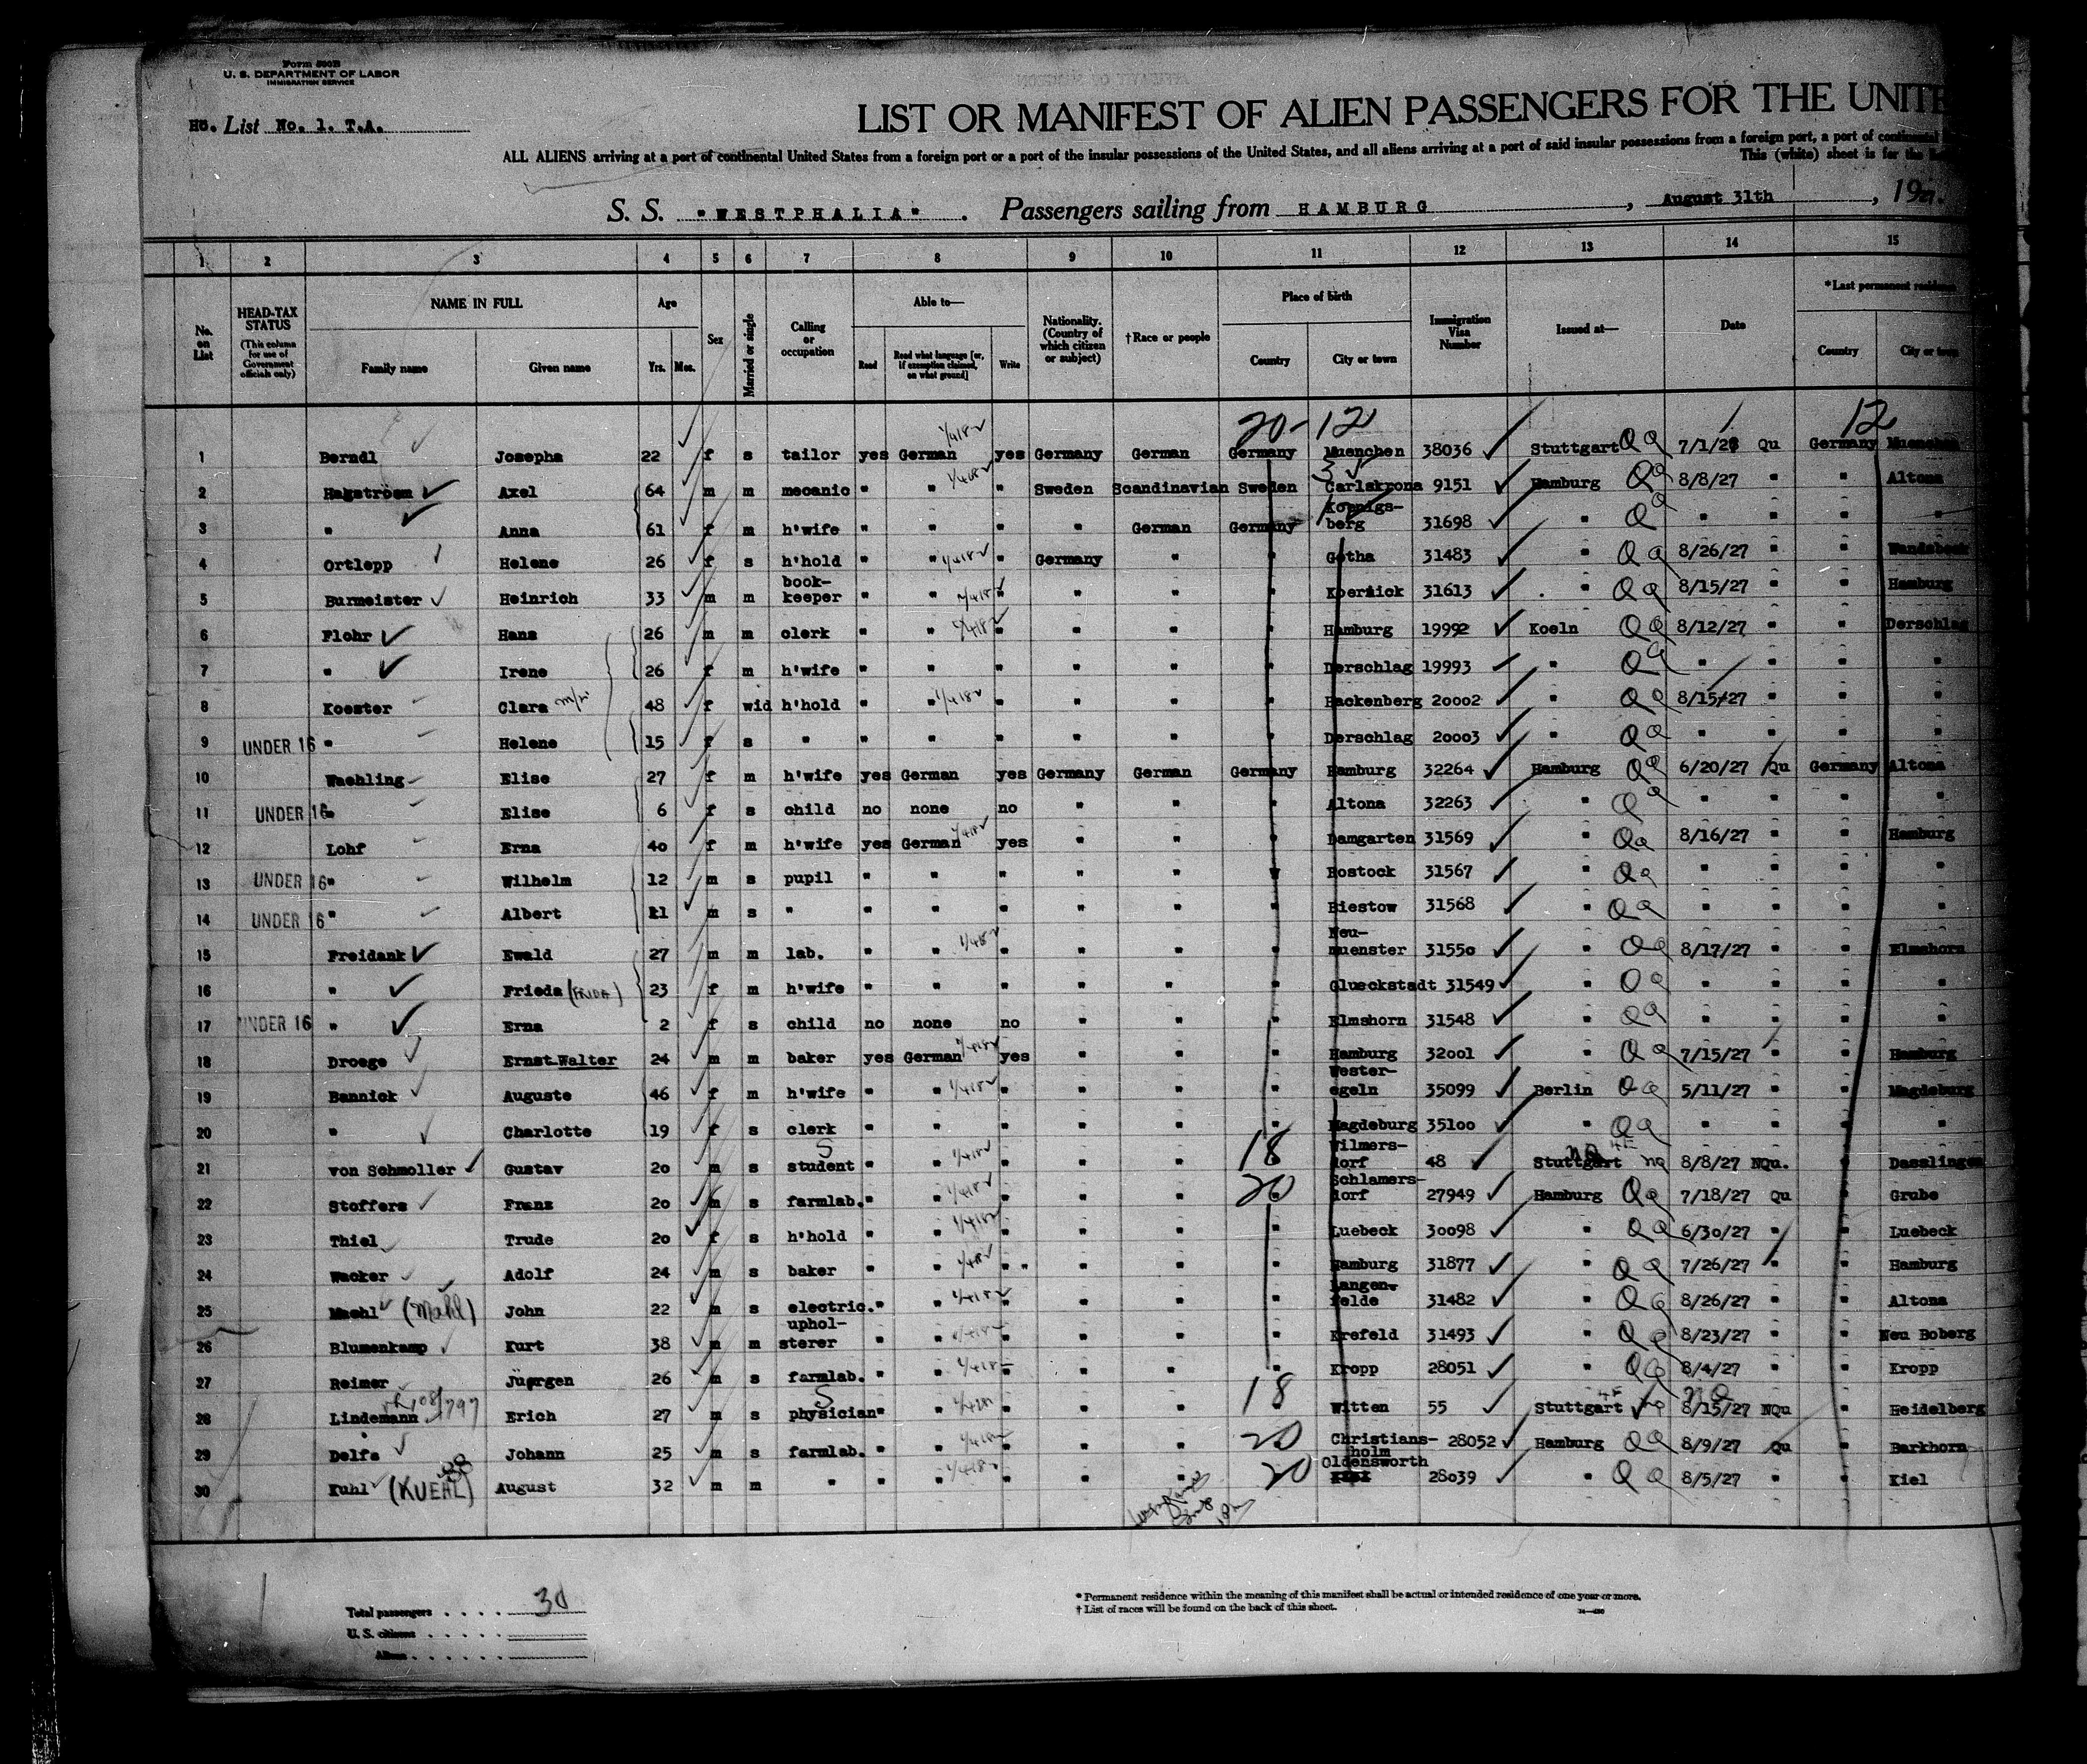 Form 500B
U. S. DEPARTMENT OF LABOR
IMMIGRATION SERVICE
Ho. List No. 1. T.A.
LIST OR MANIFEST OF ALIEN PASSENGERS FOR THE UNITE
ALL ALIENS arriving at a port of continental United States from a foreign port or a port of the insular possessions of the United States, and all aliens arriving at a port of said insular possessions from a foreign port, a port of continental
This (white) sheet is for the
S. S. "WESTPHALIA". Passengers sailing from HAMBURG, August 31th, 1927.
1 2 3 4 5 6 7 8 9 10 11 12 13 14 15
No. on List HEAD-TAX STATUS (This column for use of Government officials only) NAME IN FULL Family name Given name Age Yrs. Mos. Sex Married or single Calling or occupation Able to— Read Read what language [or, if exemption claimed, on what ground] Write Nationality. (Country of which citizen or subject) †Race or people Place of birth Country City or town Immigration Visa Number Issued at— Date *Last permanent residence Country City or town
20-12 12
1 Berndl Josepha 22 f s tailor yes German yes Germany German Germany Muenchen 38036 Stuttgart QQ 7/1/28 Qu Germany Muenchen
2 Hagstroem Axel 64 m m mecanic " " " Sweden Scandinavian Sweden Carlskrona 9151 Hamburg 8/8/27 " " Altona
3 " Anna 61 f m h'wife " " " " German Germany Koenigs-berg 31698 " " " " "
4 Ortlepp Helene 26 f s h'hold " " " Germany " " Gotha 31483 " 8/26/27 " " Wandsbeck
5 Burmeister Heinrich 33 m m book-keeper " " " " " " Koernick 31613 " 8/15/27 " " Hamburg
6 Flohr Hans 26 m m clerk " " " " " " Hamburg 19992 Koeln 8/12/27 " " Derschlag
7 " Irene 26 f m h'wife " " " " " " Derschlag 19993 " " " " "
8 Koester Clara 48 f wid h'hold " " " " " " Hackenberg 20002 " 8/15/27 " " "
9 UNDER 16 " Helene 15 f s " " " " " " " Derschlag 20003 " " " " "
10 Waehling Elise 27 f m h'wife yes German yes Germany German Germany Hamburg 32264 Hamburg 6/20/27 Qu Germany Altona
11 UNDER 16 " Elise 6 f s child no none no " " " Altona 32263 " " " " "
12 Lohf Erna 40 f m h'wife yes German yes " " " Damgarten 31569 " 8/16/27 " " Hamburg
13 UNDER 16 " Wilhelm 12 m s pupil " " " " " " Rostock 31567 " " " " "
14 UNDER 16 " Albert 11 m s " " " " " " " Biestow 31568 " " " " "
15 Freidank Ewald 27 m m lab. " " " " " " Neu-muenster 31550 " 8/17/27 " " Elmshorn
16 " Frieda (FRIDA) 23 f m h'wife " " " " " " Glueckstadt 31549 " " " " "
17 UNDER 16 " Erna 2 f s child no none no " " " Elmshorn 31548 " " " " "
18 Droege Ernst Walter 24 m m baker yes German yes " " " Hamburg 32001 " 7/15/27 " " Hamburg
19 Bannick Auguste 46 f m h'wife " " " " " " Wester-egeln 35099 Berlin 5/11/27 " " Magdeburg
20 " Charlotte 19 f s clerk " " " " " " Magdeburg 35100 " " " " "
21 von Schmoller Gustav 20 m s student " " " " " 18 Wilmers-dorf 48 Stuttgart 8/8/27 NQu. "
22 Stoffers Franz 20 m s farmlab. " " " " " 20 Schlamers-dorf 27949 Hamburg 7/18/27 Qu " Grube
23 Thiel Trude 20 f s h'hold " " " " " " Luebeck 30098 " 6/30/27 " " Luebeck
24 Wacker Adolf 24 m s baker " " " " " " Hamburg 31877 " 7/26/27 " " Hamburg
25 Maehl (Mahl) John 22 m s electric. " " " " " " Langen-felde 31482 " 8/26/27 " " Altona
26 Blumenkamp Kurt 38 m m uphol-sterer " " " " " " Krefeld 31493 " 8/23/27 " " Neu Boberg
27 Reimer Juergen 26 m s farmlab. " " " " " " Kropp 28051 " 8/4/27 " " Kropp
28 Lindemann Erich 27 m s physician " " " " " 18 Witten 55 Stuttgart 8/15/27 NQu " Heidelberg
29 Delfs Johann 25 m s farmlab. " " " " " 20 Christians-holm 28052 Hamburg 8/9/27 Qu " Barkhorn
30 Kuhl (KUEHL) August 32 m m " " " " " " 20 Oldensworth 28039 " 8/5/27 " " Kiel
Total passengers . . . . 30
U. S. citizens . . . . .
Aliens . . . . . .
* Permanent residence within the meaning of this manifest shall be actual or intended residence of one year or more.
† List of races will be found on the back of this sheet.